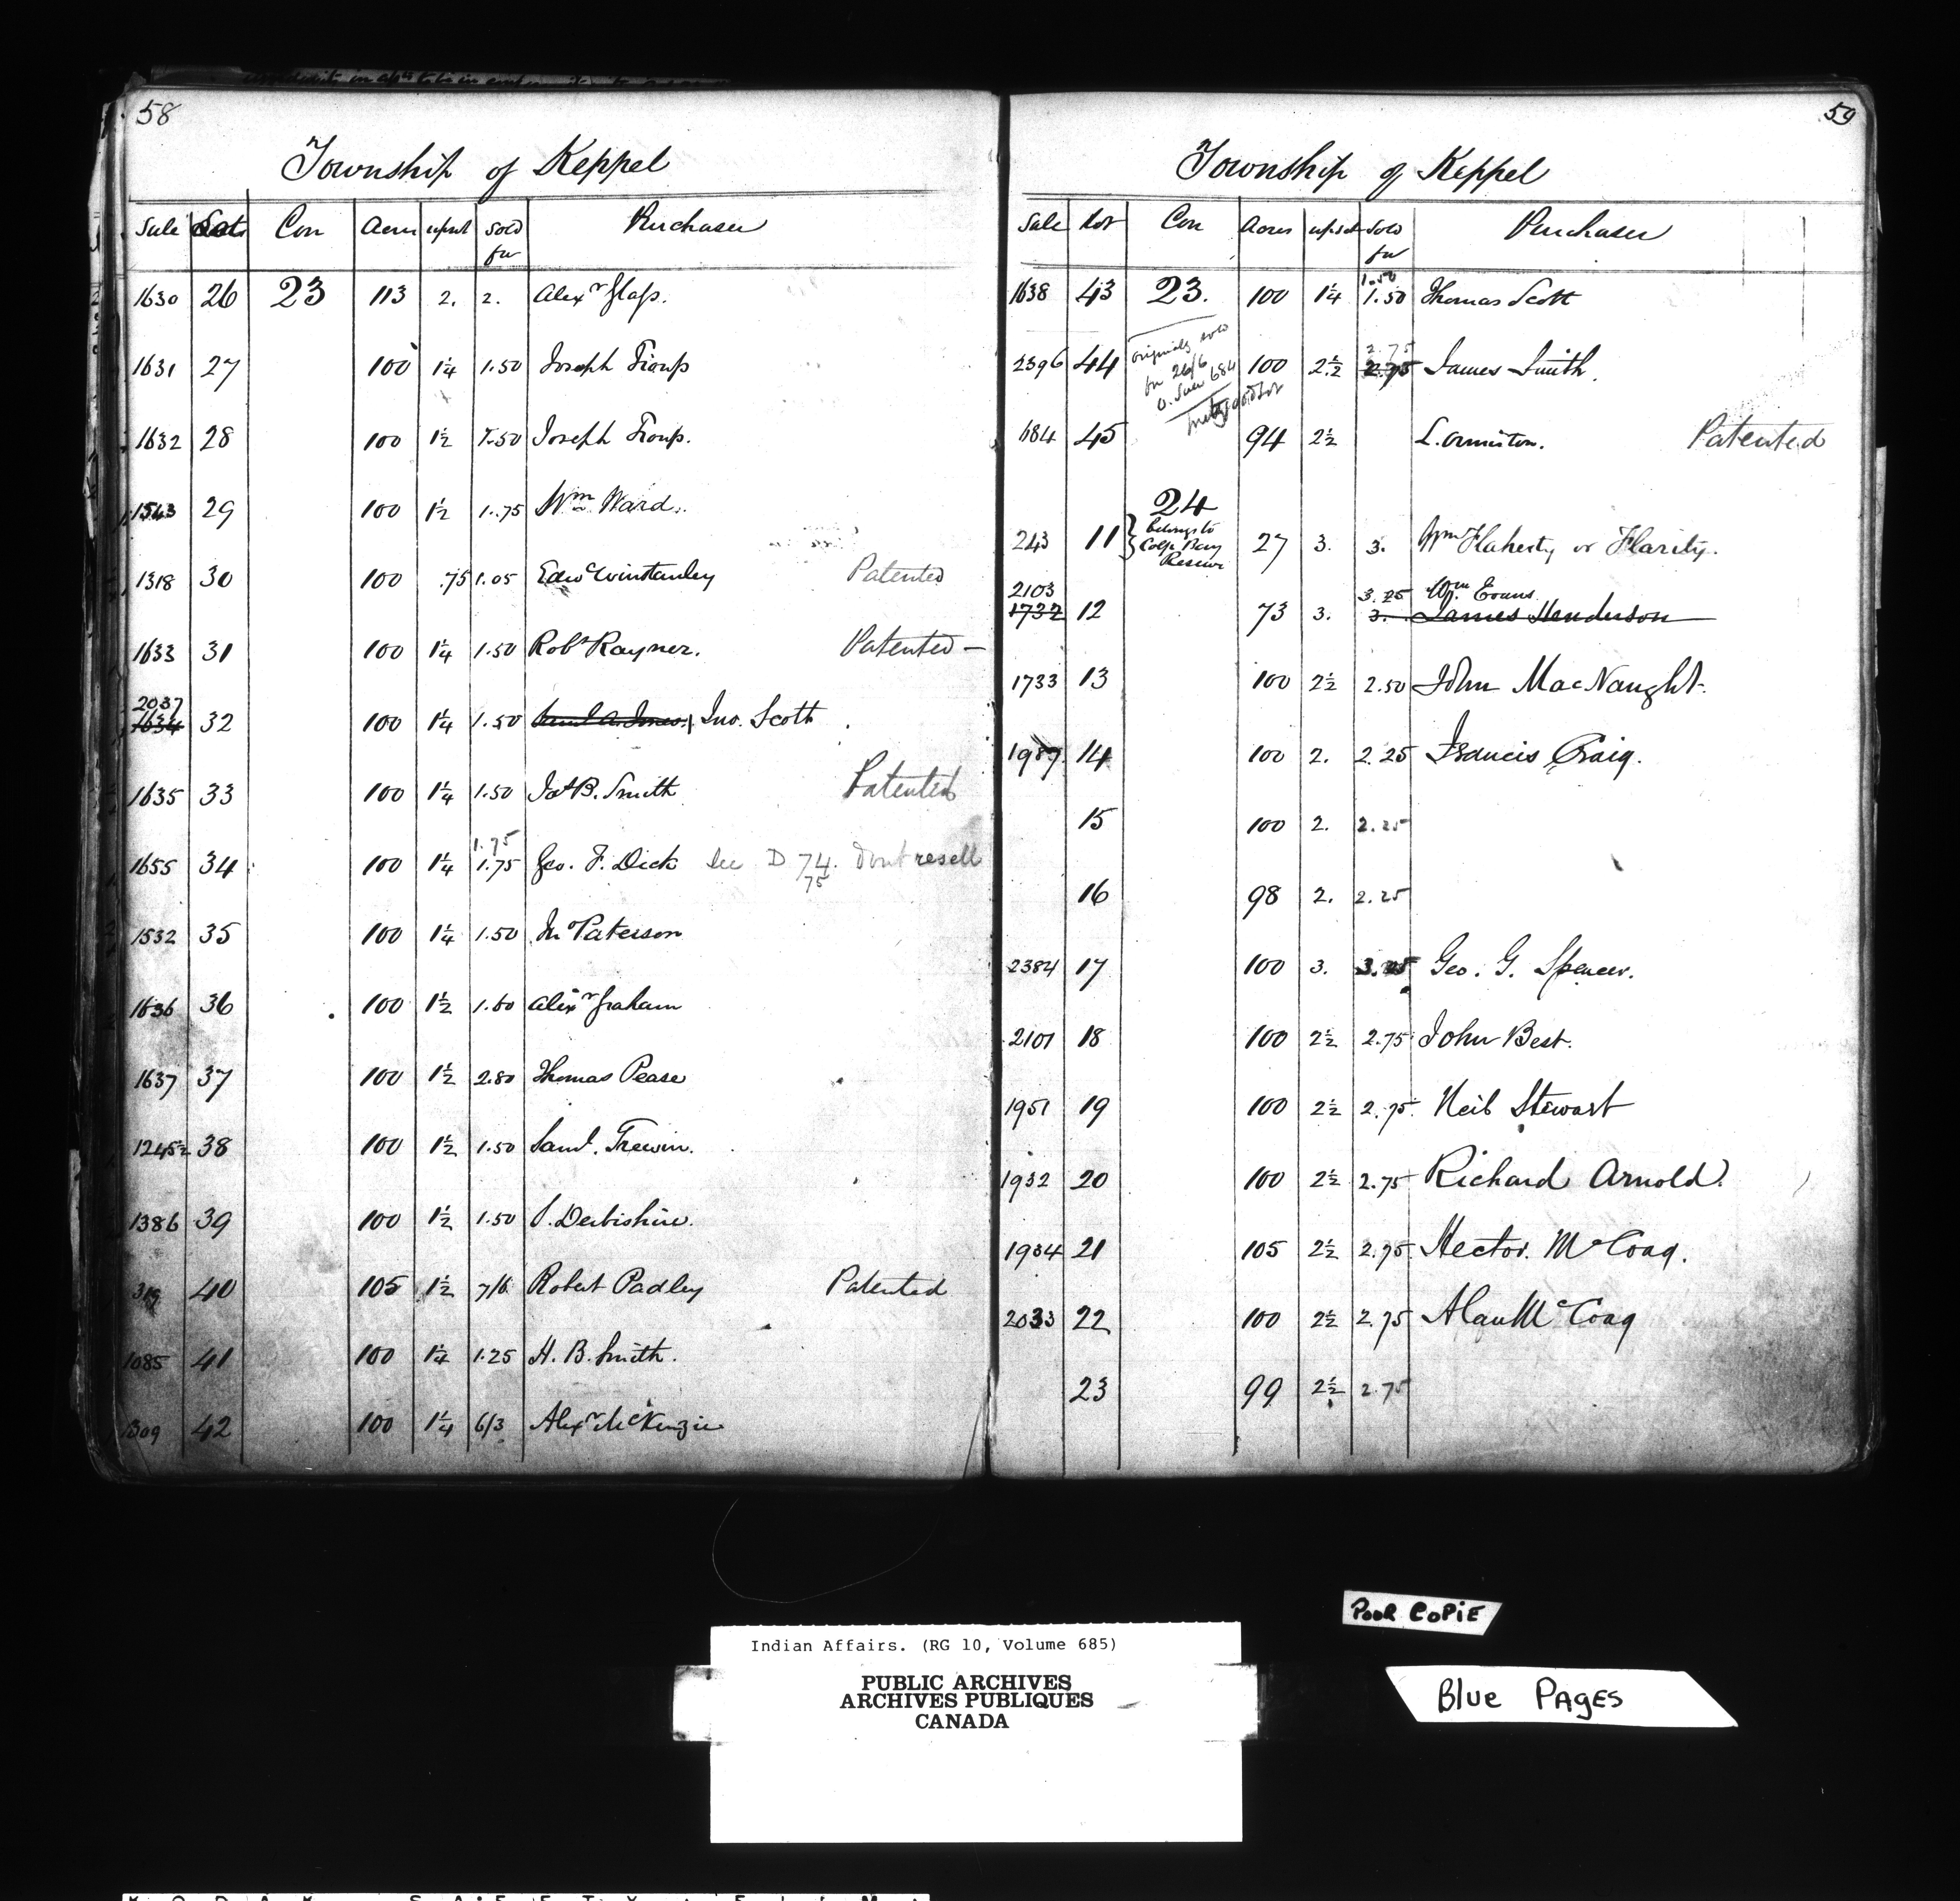 58
Township of Keppel
Sale Lots Con Acres upset Sold for Purchaser
1630 26 23 113 2. 2. Alexr
1631 27 100 1¼ 1.50 Joseph
1632 28 100 1½ 1.50 Joseph
1543 29 100 1½ 1.75 Wm Ward.
1318 30 100 .75 1.05 Edwd Winstanley Patented
1633 31 100 1¼ 1.50 Robt Rayner. Patented —
2037
1634 32 100 1¼ 1.50 Saml A. Jones. Jno. Scott
1635 33 100 1¼ 1.50 B. Smith Patented
1.75
1655 34 100 1¼ 1.75 Geo. F. Dick See D 74. Dont resell
75
1532 35 100 1¼ 1.50 Paterson
1636 36 100 1½ Alexr Graham
1637 37 100 1½ 2.80 Thomas Pease
1245½ 38 100 1½ 1.50 Saml. Trewin.
1386 39 100 1½ 1.50 S. Derbishire.
319 40 105 1½ 7/6 Robert Padley Patented
1085 41 100 1¼ 1.25 H. B. Smith.
1309 42 100 1¼ 6/3 Alexr McKenzie
59
Township of Keppel
Sale Lot Con Acres upset Sold for Purchaser
1.50
1638 43 23. 100 1¼ 1.50 Thomas Scott
2.75
2396 44 100 2½ 2.75 James Smith.
originally sold
for 26/6
O. Sale 684
684 45 94 2½ L. Ormiston. Patented
24
243 11 belongs to Colp. Bay Reserve 27 3. 3. Wm Flaherty or Flarity.
2103 3.25 Wm. Evans
1732 12 73 3. 3. James Henderson
1733 13 100 2½ 2.50 John MacNaught.
1987 14 100 2. 2.25 Francis Craig.
15 100 2. 2.25
16 98 2. 2.25
2384 17 100 3. 3.25 Geo. G. Spencer.
2101 18 100 2½ 2.75 John Best.
1951 19 100 2½ 2.75 Neil Stewart
1932 20 100 2½ 2.75 Richard Arnold.
1934 21 105 2½ 2.75 Hector. McCoag.
2033 22 100 2½ 2.75 Alan McCoag
23 99 2½ 2.75
POOR COPIE
Indian Affairs. (RG 10, Volume 685)
PUBLIC ARCHIVES
ARCHIVES PUBLIQUES
CANADA
Blue PAGES